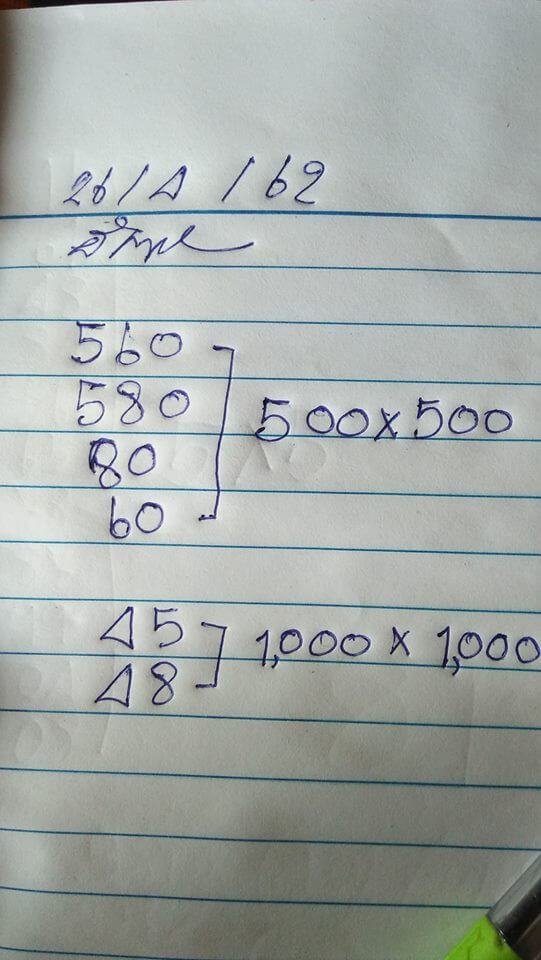 26/4/62
560
580
80
60
500x500
45
48
1,000 x 1,000